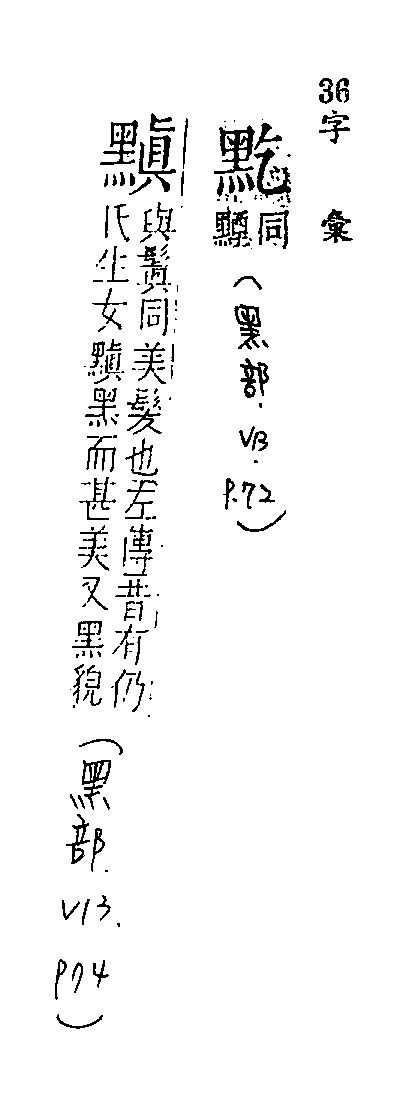 36
字彙
同
(黑部.V13.P.72)
黰
與鬒同美髮也左傳昔有仍
氏生女黰黑而甚美又黑貌
(黑部.V13.P74)